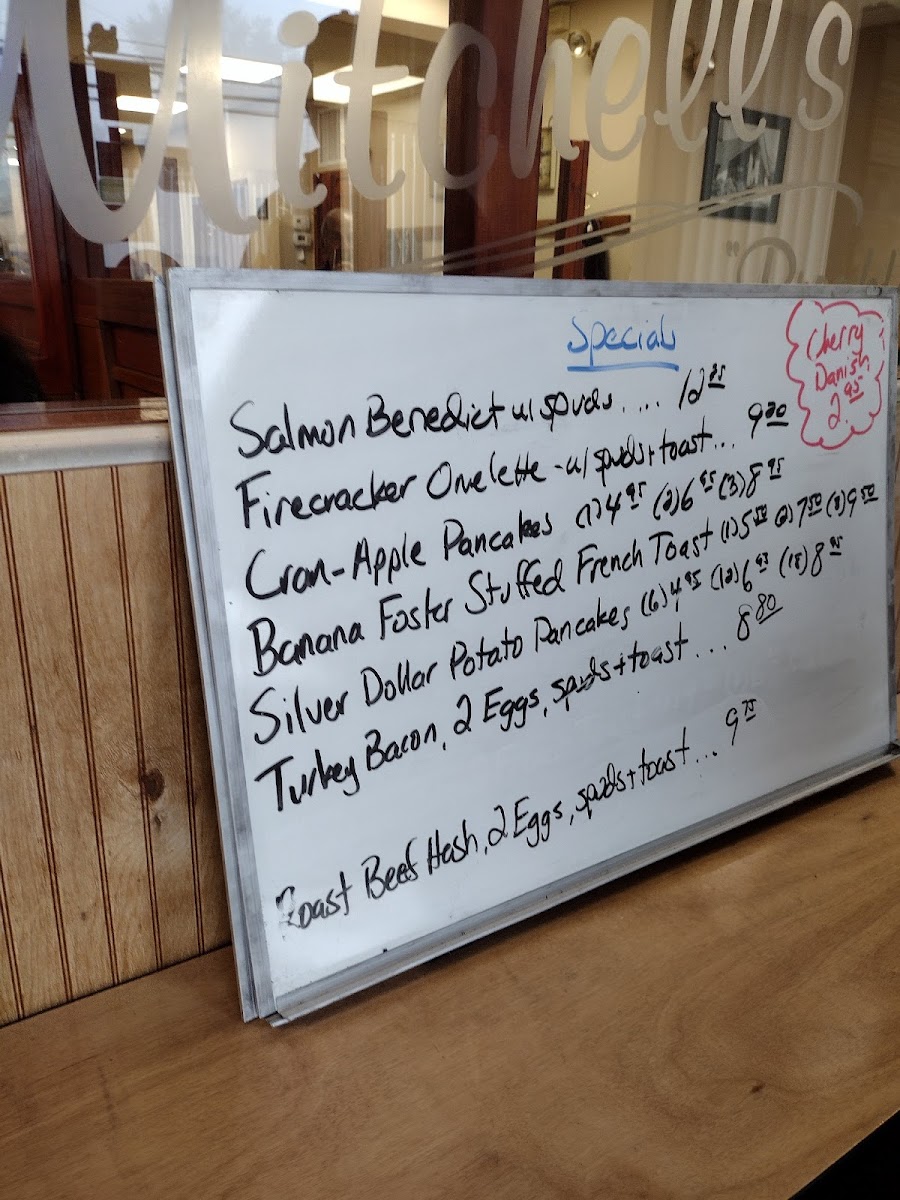 Mitchell's
Specials
Cherry
Danish
2.95
Salmon Benedict w/ spuds .... 12.95
Firecracker Omelette - w/ spuds + toast ... 9.20
Cran-Apple Pancakes (1) 4.95 (2) 6.95 (3) 8.95
Banana Foster Stuffed French Toast (1) 5.50 (2) 7.50 (3) 9.50
Silver Dollar Potato Pancakes (6) 4.95 (12) 6.95 (18) 8.95
Turkey Bacon, 2 Eggs, spuds + toast ... 8.80
Roast Beef Hash, 2 Eggs, spuds + toast ... 9.75